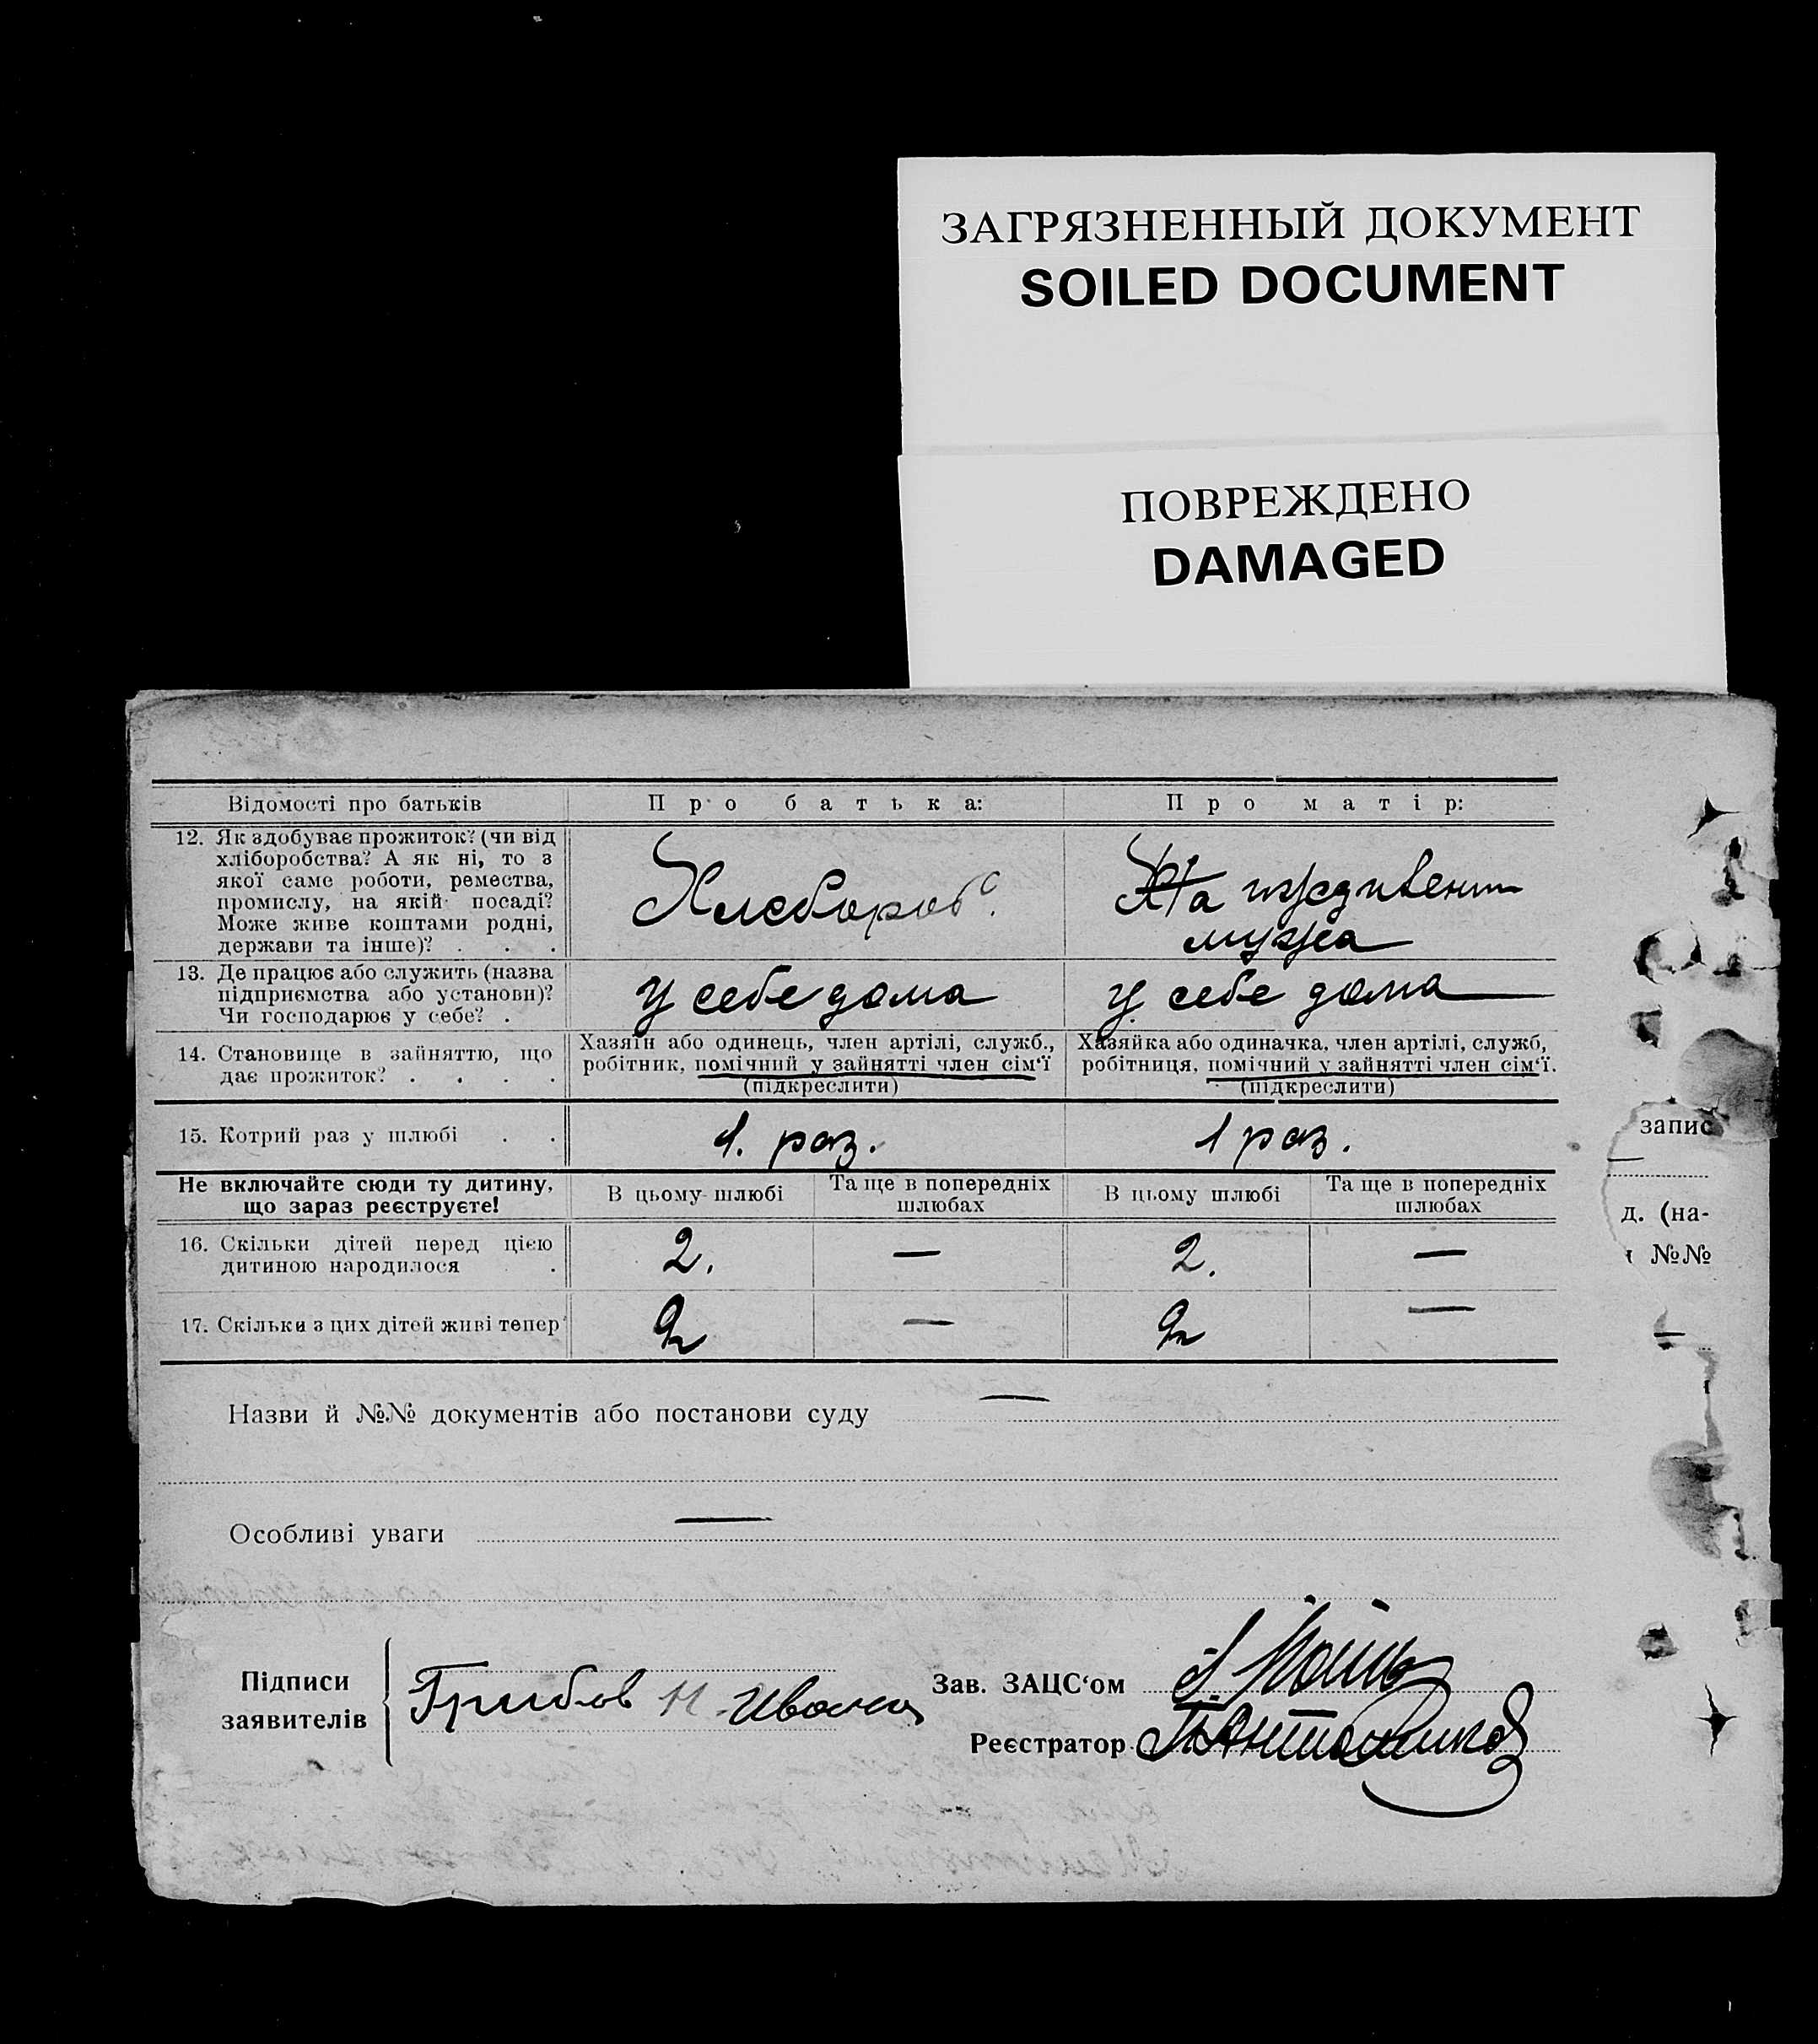 ЗАГРЯЗНЕННЫЙ ДОКУМЕНТ
SOILED DOCUMENT
ПОВРЕЖДЕНО
DAMAGED
Відомості про батьків
Про батька:
Про матір:
12. Як здобуває прожиток? (чи від
хліборобства? А як ні, то з
якої саме роботи, ремества,
промислу, на якій посаді?
Може живе коштами родні,
держави та інше)? . . .
Хлебороб
На иждивении
мужа
13. Де працює або служить (назва
підприємства або установи)?
Чи господарює у себе? .
у себе дома
у себе дома
14. Становище в зайняттю, що
дає прожиток? . . . .
Хазяїн або одинець, член артілі, служб.,
робітник, помічний у зайнятті член сім'ї
(підкреслити)
Хазяйка або одиначка, член артілі, служб,
робітниця, помічний у зайнятті член сім'ї.
(підкреслити)
15. Котрий раз у шлюбі . .
1. раз.
1 раз.
Не включайте сюди ту дитину,
що зараз реєструєте!
В цьому шлюбі
Та ще в попередніх
шлюбах
В цьому шлюбі
Та ще в попередніх
шлюбах
16. Скільки дітей перед цією
дитиною народилося .
2. —
2. —
17. Скільки з цих дітей живі тепер
2 —
2 —
Назви й №№ документів або постанови суду —
Особливі уваги —
Підписи
заявителів
Грибов И. Ивано
Зав. ЗАЦС'ом
Реєстратор
запис
д. (на-
№№